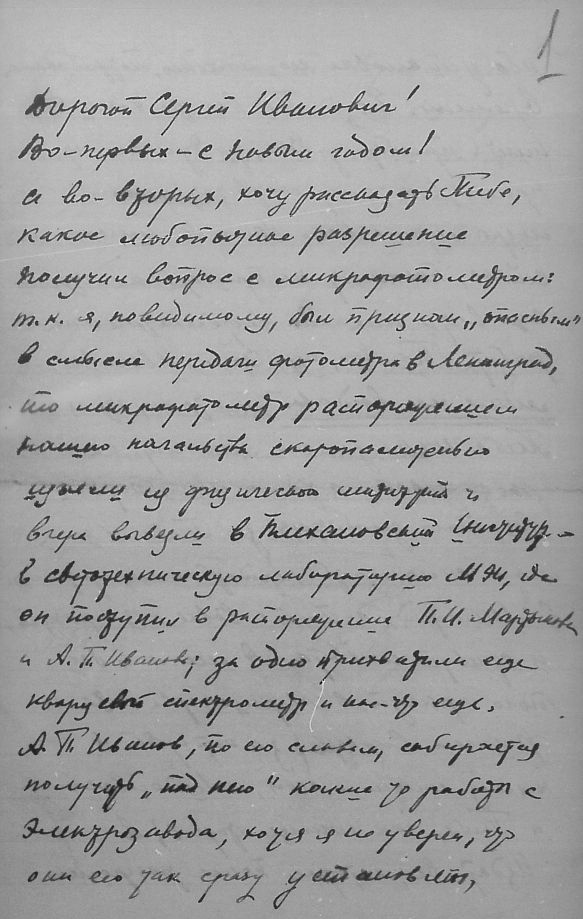 1
Дорогой Сергей Иванович!
Во-первых – с новым годом!
а во-вторых, хочу рассказать Тебе,
какое любопытное разрешение
получил вопрос с микрофотометром:
т.к. я, повидимому, был признан „опасным"
в смысле передачи фотометра в Ленинград,
то микрофотометр распоряжением
нашего начальства скоропалительно
изъяли из физического института и
вчера вывезли в Плехановский Институт –
в светотехническую лабораторию МЭИ, где
он поступил в распоряжение П.И.
и А.П. Иванова; за одно прихватили еще
кварцевый спектрометр и кое-что еще.
А.П. Иванов, по его словам, собирается
получить „под него" какие то работы с
Электрозавода, хотя я не уверен, что
они его так сразу установят,